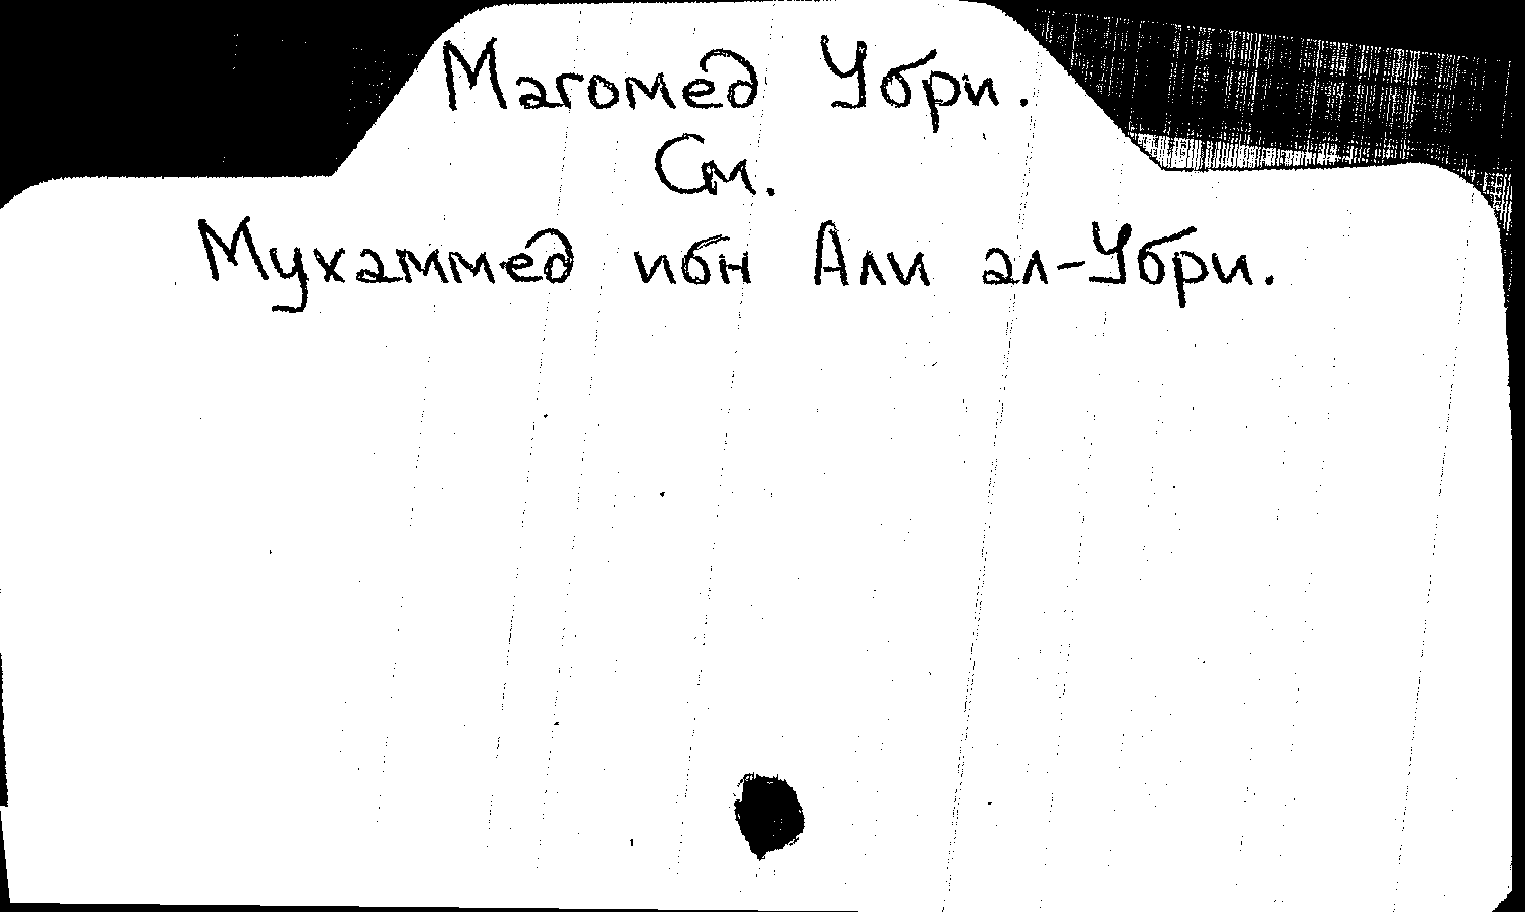 Магомед Убри.
См.
Мухаммед ибн Али ал-Убри.